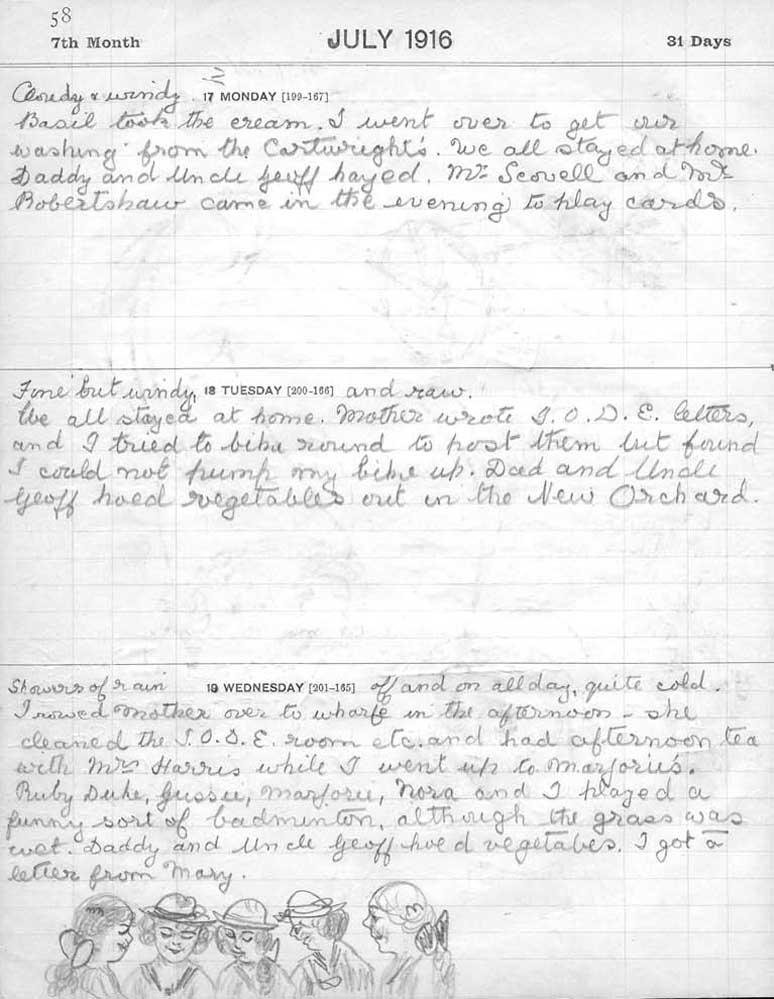 58
7th Month JULY 1916 31 Days
Cloudy & windy 17 MONDAY [199-167]
Basil took the cream. I went over to get our
washing from the Cartwright's. We all stayed at home.
Daddy and Uncle Geoff hayed. Mr. Scovell and Mr.
Robertshaw came in the evening to play cards.
Fine but windy, 18 TUESDAY [200-166] and raw.
We all stayed at home. Mother wrote I.O.D.E. letters,
and I tried to bike round to post them but found
I could not pump my bike up. Dad and Uncle
Geoff hoed vegetables out in the New Orchard.
Showers of rain 19 WEDNESDAY [201-165] off and on all day, quite cold.
I rowed Mother over to wharfe in the afternoon - she
cleaned the I.O.D.E. room etc. and had afternoon tea
with Mrs Harris while I went up to Marjorie's.
Ruby Duke, Gussie, Marjorie, Nora and I played a
funny sort of badminton, although the grass was
wet. Daddy and Uncle Geoff hoed vegetabes. I got a
letter from Mary.